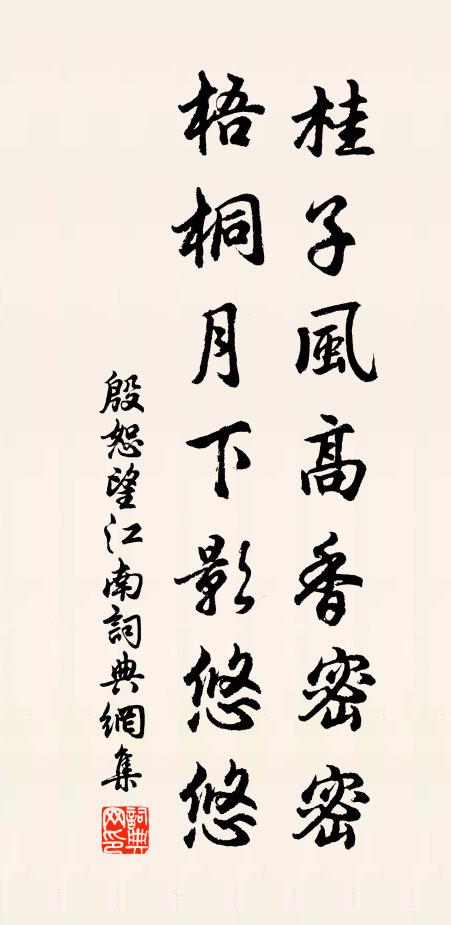 桂子風高香密密
梧桐月下影悠悠
殷恕望江南詞典網集
詞典
网印